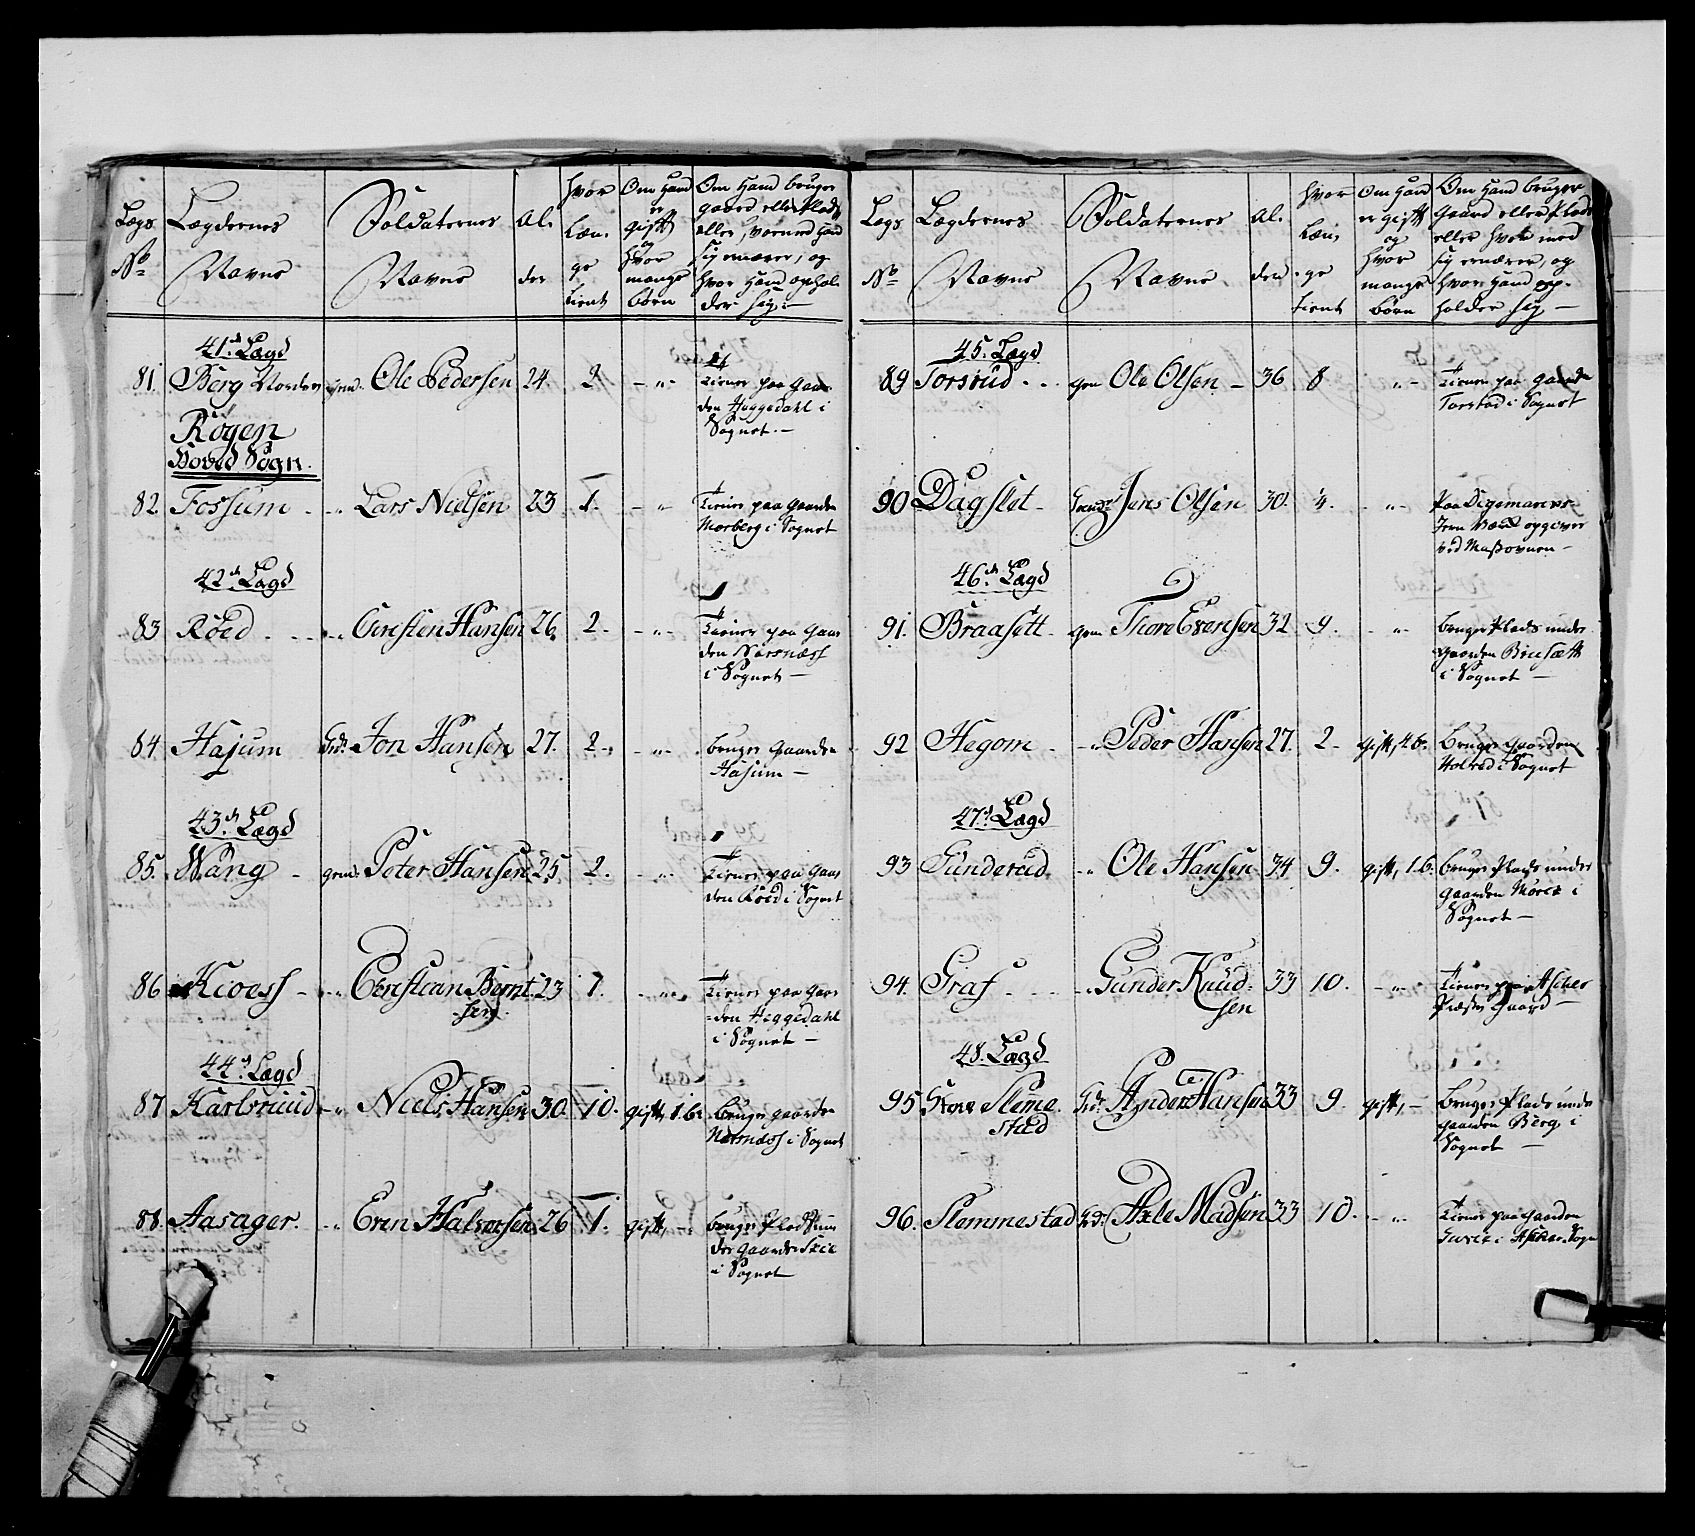 Lægs No
Lægdernes Navne
Soldaternes Navne
Al- der
hvor Læn- ge tient
Om Hand er gift og hvor mange børn
Om Hand bruger gaard eller Plads eller, hvormed Hand sig ernærer, og hvor Hand ophol- der sig. —
41de Lægd
81. Berg Norden gem. Ole Pedersen 24. 2 - „ - tiener paa Gaar
den Heggedahl i
Sognet. —
Røyen
Hoved Sogn.
82 Fossum - „ Lars Nielsen 23 1. - „ tiener paa Gaarden
Morberg i Sognet
42de Lægd
83 Röed - „ Christen Hansen 26. 2 - - „ - tiener paa Gaar
den Nærsnæss
i Sognet —
84. Hajum Grd: Jon Hansen 27. 2 - - „ - bruger Gaarden
Hajum —
43de Lægd
85. Wang - gem. Peter Hansen 25 2. - „ - tiener paa Gaar
den Röed i Sognet
86 Kioess - „ Christian Bernt- 23 1. - „ tiener paa Gaar
sen den Heggedahl
i Sognet —
44de Lægd
87 Karlsruud - „ Niels Hansen 30. 10. gift, 1.b. bruger gaarden
Nærsnæss i Sognet
88. Aasager. - „ Even Halvorsen 26 1. gift, - bruger Plads un
der gaarden
i Sognet
Lægs No
Lægdernes Navne
Soldaternes Navne
Al- der
hvor Læn- ge tient
Om Hand er gift og hvor mange børn
Om Hand bruger Gaard eller Plads eller hvor med sig ernærer, og hvor Hand op- holder sig —
45. Lægd
89 Torsrud - - gem Ole Olsen - 36 8 „ - tiener paa gaarden
Torstad i Sognet
90 Dagslet - Jens Olsen 30. 4. - „ - Paa
Jern Værk opgiver
ved Massovnen —
46de Lægd
91. Braasett - gem Thore Evensen 32 9. „ - bruger Plads under
Gaarden
i Sognet —
92 Hegom - „ Peder Hansen 27. 2 - gift, 4 b. bruger Gaarden
i Sognet
47de Lægd
93 Gunderud. - „ Ole Hansen 34 9. gift, 1.b. bruger Plads under
gaarden i
Sognet —
94. Graf - - - „ Gunder Knud- 33 10. - „ - tiener paa Asker
sen Præste Gaard —
48. Lægd
95 Store Sleme Grd: Hansen 33 9. gift, - bruger Plads under
stad gaarden Berg i
Sognet —
96. Slemmestad Grd: Axle Madsen 33 10. - „ - tiener paa Gaarden
i Asker Sogn